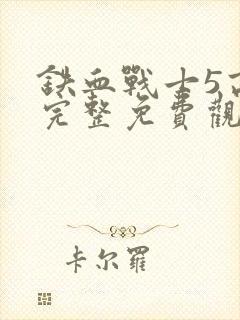 鉄血戰士5高
完整免費觀
卡尔羅